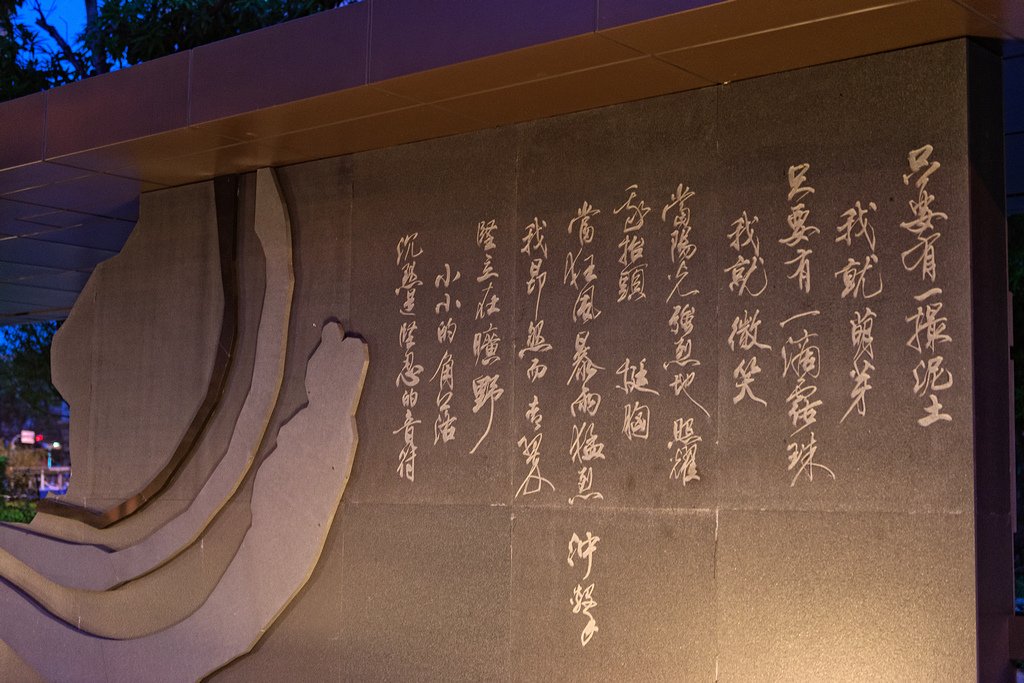 只要有一撮泥土
我就萌芽
只要有一滴露珠
我就微笑
當陽光強烈地 照耀
我抬頭 挺胸
當狂風暴雨猛烈 沖擊
我昂然而青翠
堅立在曠野
小小的角落
沉默是堅忍的音符